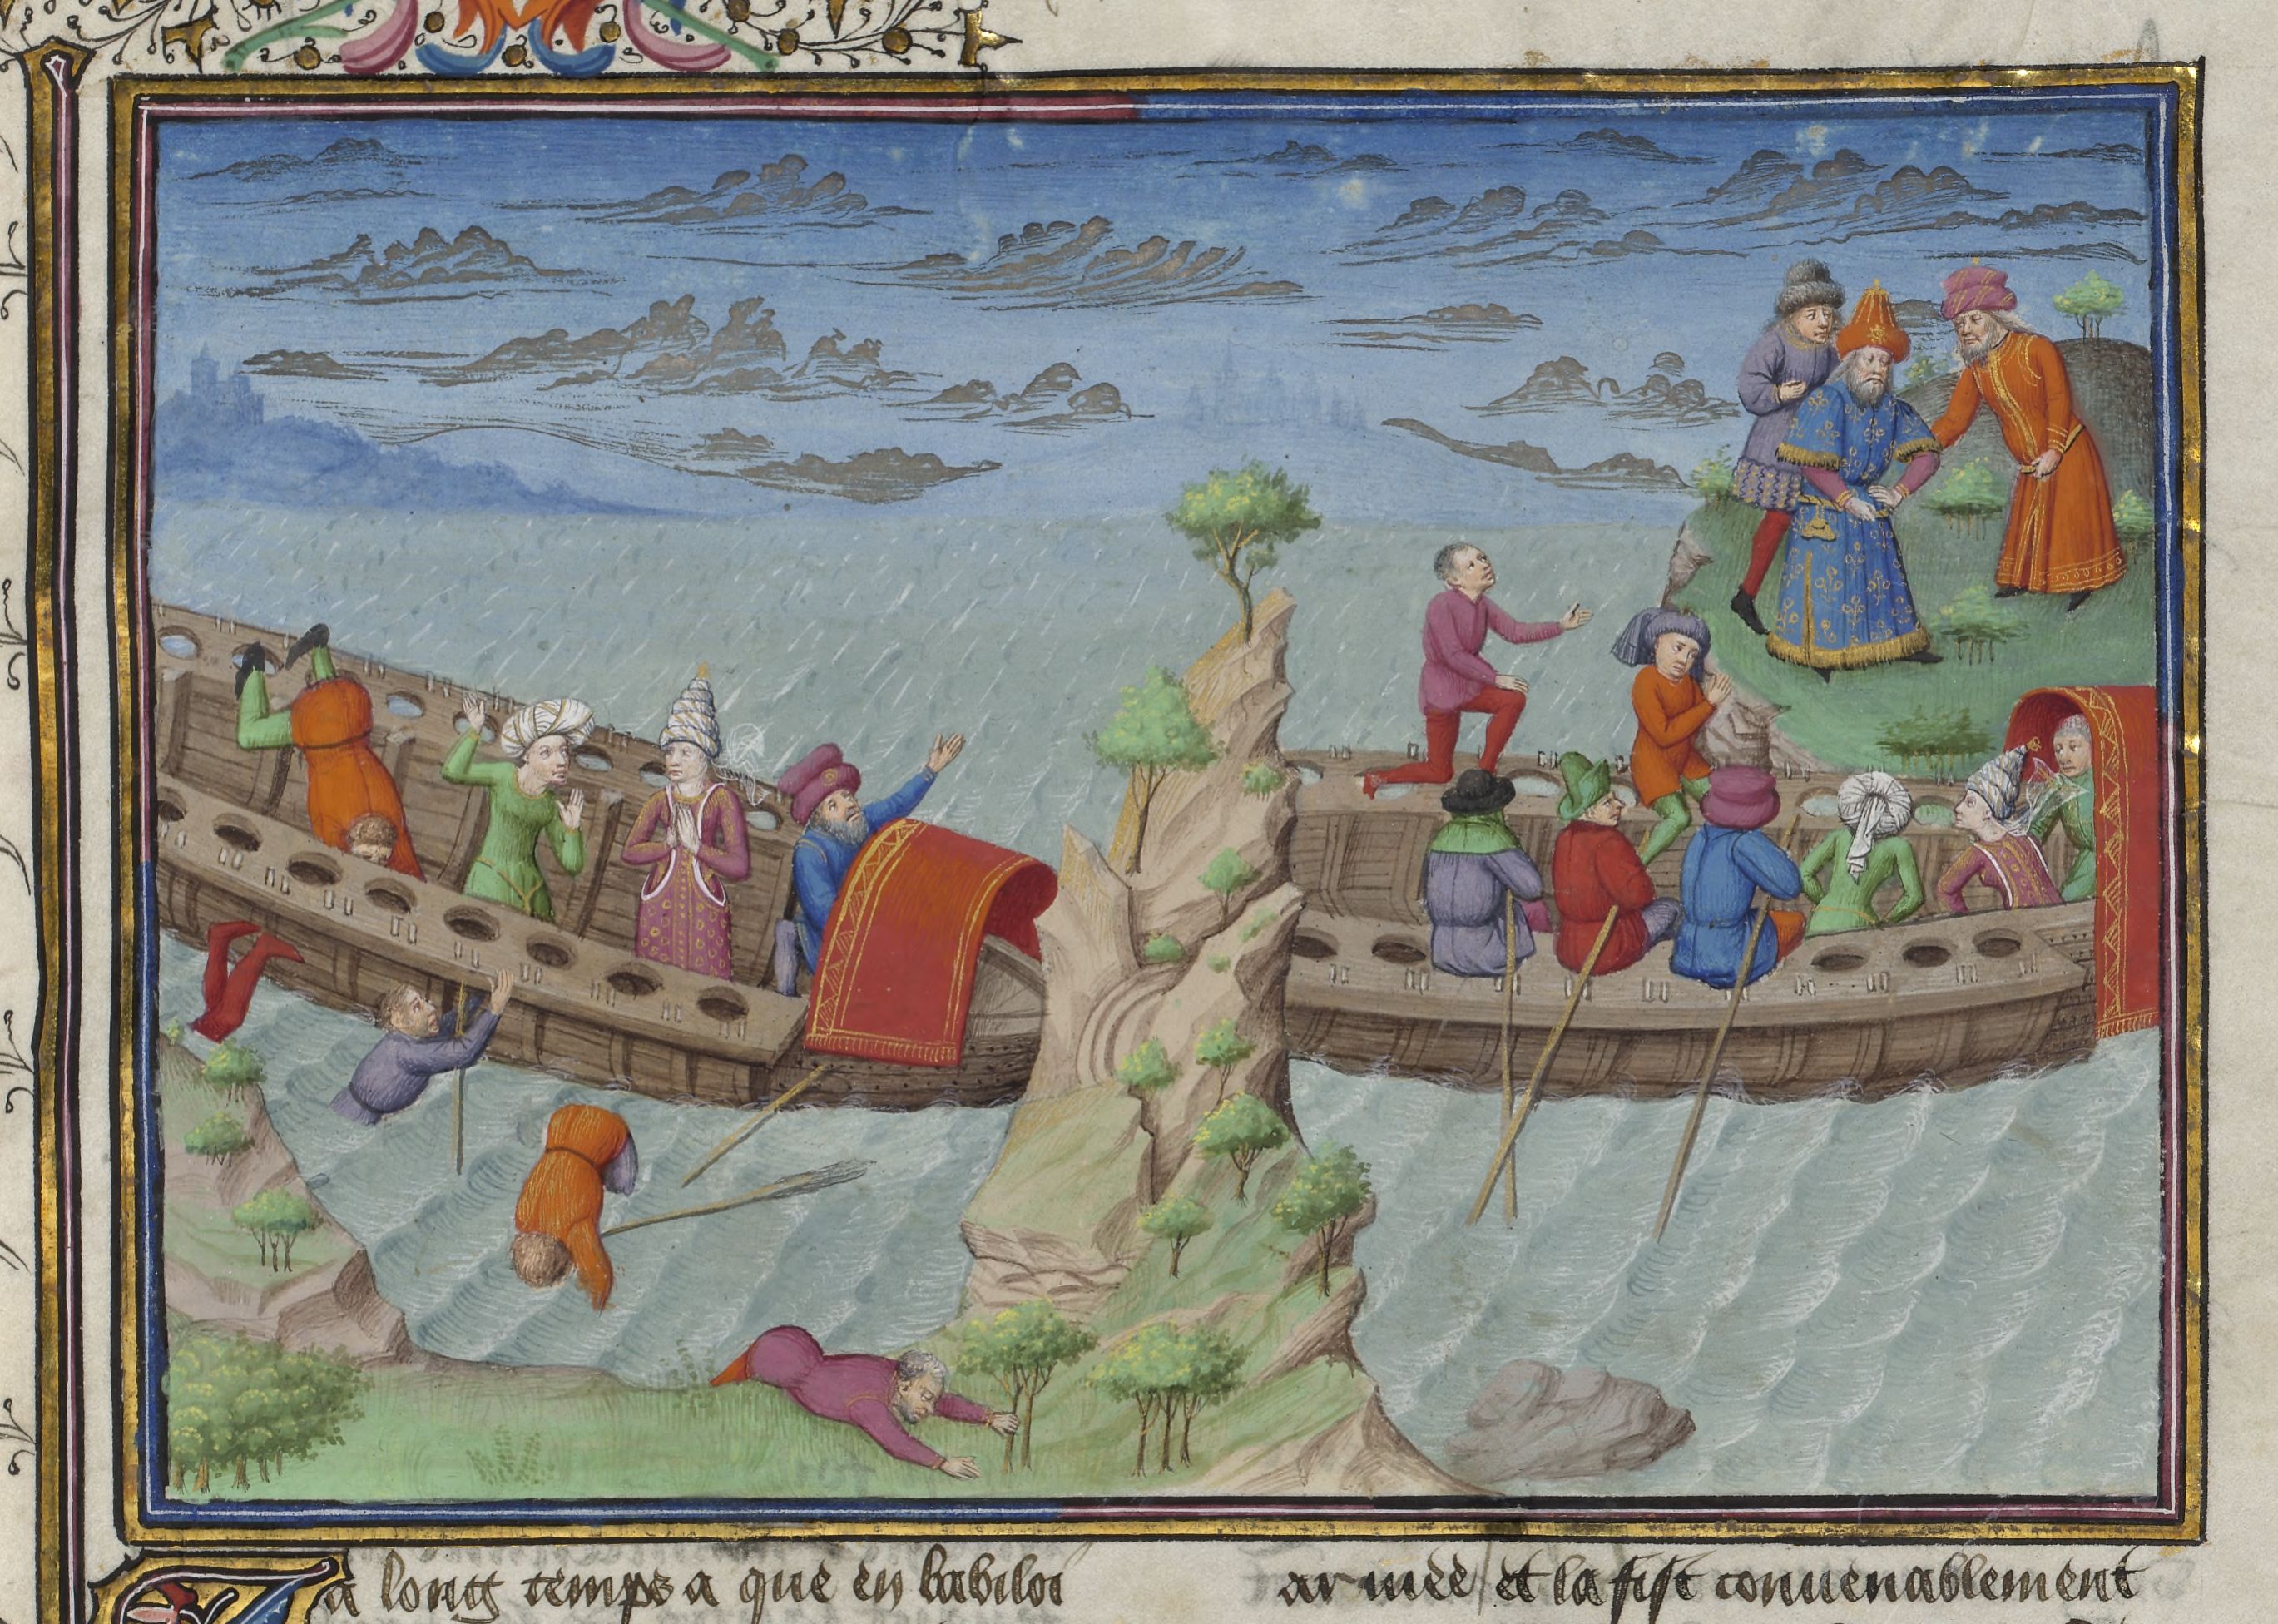 Ja long temps a que en babiloi
armee / et la fist conuenablement